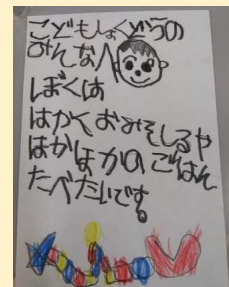 こどもしょくどうの
みんなへ
ぼくは
はかくおみそしるや
ほかほかのごはん
たべたいです。